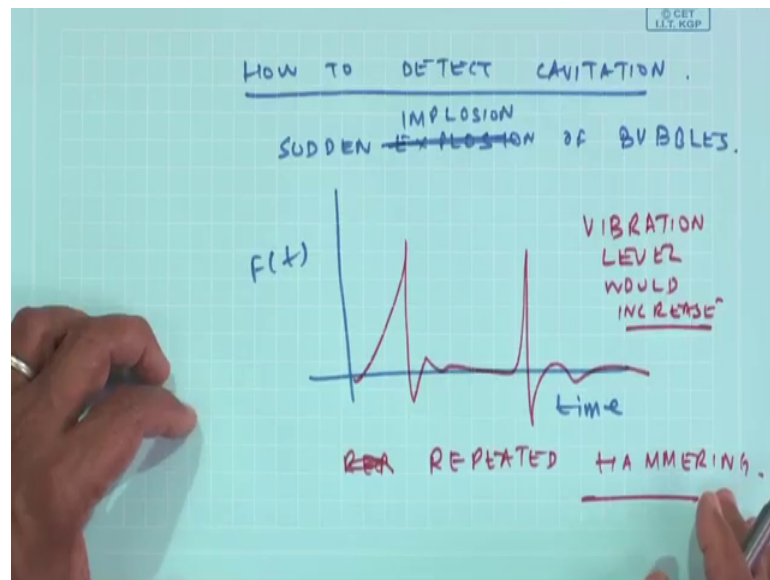 © CET
I.I.T. KGP
HOW TO DETECT CAVITATION.
IMPLOSION
SUDDEN EXPLOSION OF BUBBLES.
F(t)
VIBRATION
LEVEL
WOULD
INCREASE
time
REPEATED HAMMERING.